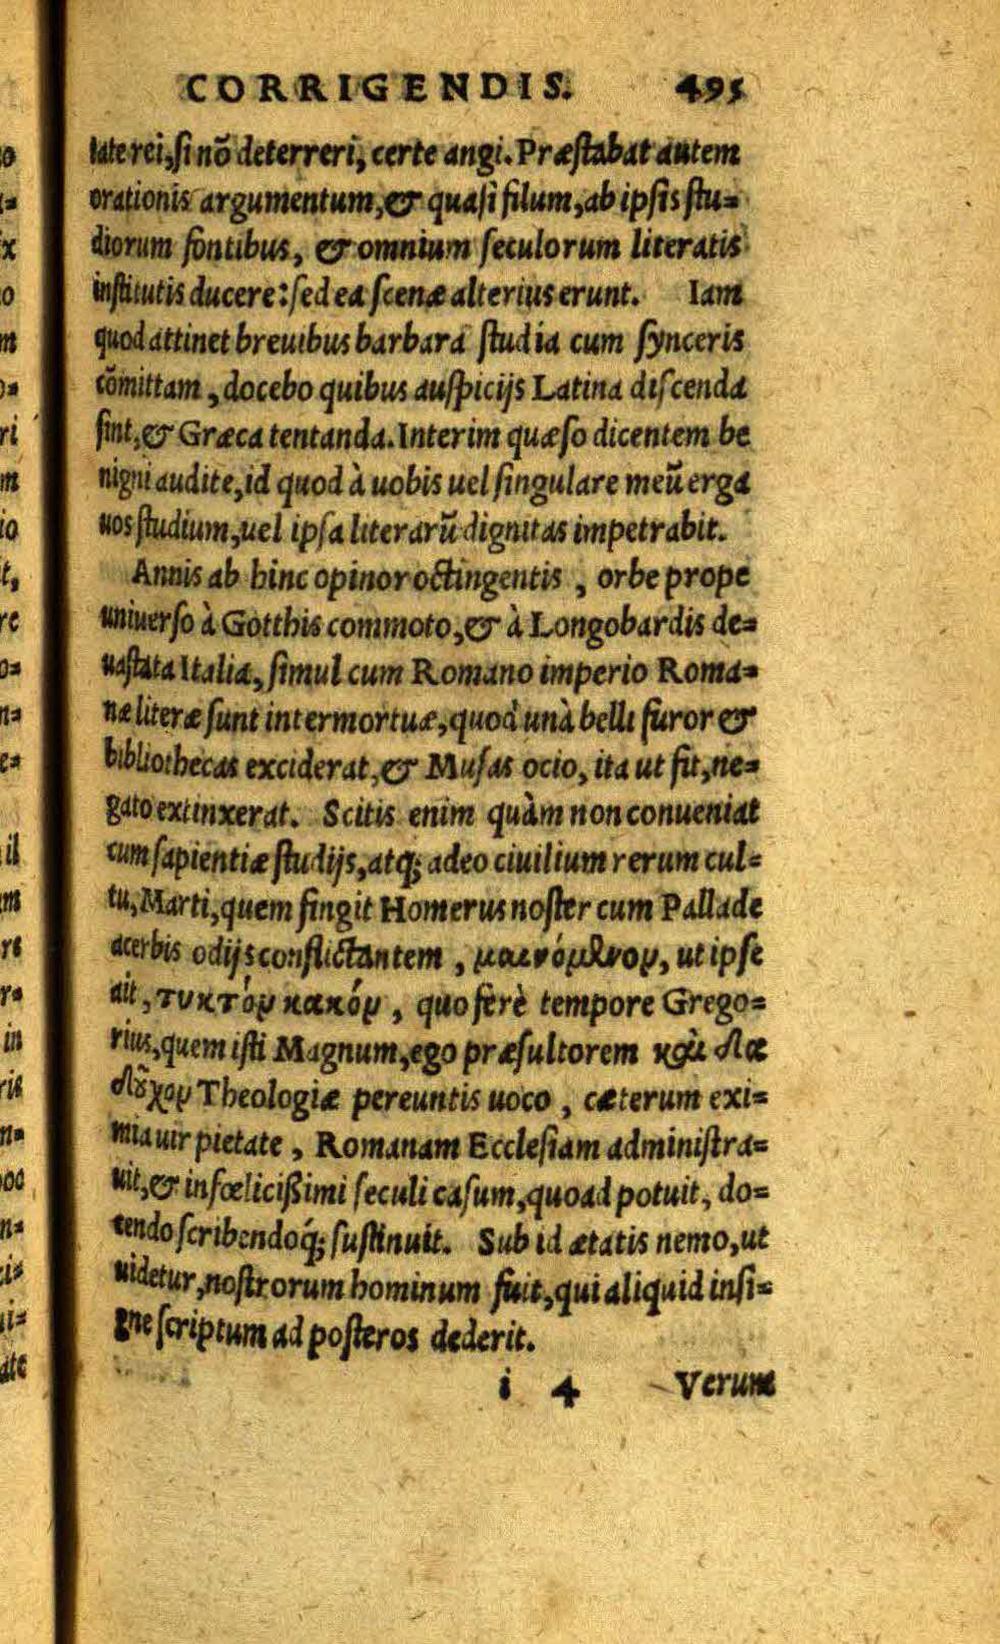 CORRIGENDIS. 495
tate rei, si nō deterreri, certe angi. Præstabat autem
orationis argumentum, & quasi filum, ab ipsis stu=
diorum fontibus, & omnium seculorum literatis
institutis ducere: sed ea scenæ alterius erunt. Iam
quod attinet breuibus barbara studia cum synceris
cōmittam, docebo quibus auspicijs Latina discenda
sint, & Græca tentanda. Interim quæso dicentem be
nigni audite, id quod à uobis uel singulare meū erga
uos studium, uel ipsa literarū dignitas impetrabit.
Annis ab hinc opinor octingentis, orbe prope
uniuerso à Gotthis commoto, & à Longobardis de=
uastata Italia, simul cum Romano imperio Roma=
næ literæ sunt intermortuæ, quod unà belli furor &
bibliothecas exciderat, & Musas ocio, ita ut fit, ne=
gato extinxerat. Scitis enim quàm non conueniat
cum sapientiæ studijs, atq; adeo ciuilium rerum cul=
tu, Marti, quem fingit Homerus noster cum Pallade
acerbis odijs conflictantem, μαινόμενον, ut ipse
ait, τυκτόν κακόν, quo ferè tempore Grego=
rius, quem isti Magnum, ego præsultorem καὶ δα
δοῦχον Theologiæ pereuntis uoco, cæterum exi=
mia uir pietate, Romanam Ecclesiam administra=
uit, & infœlicißimi seculi casum, quoad potuit, do=
cendo scribendoq́; sustinuit. Sub id ætatis nemo, ut
uidetur, nostrorum hominum fuit, qui aliquid insi=
gne scriptum ad posteros dederit.
i 4 Verum